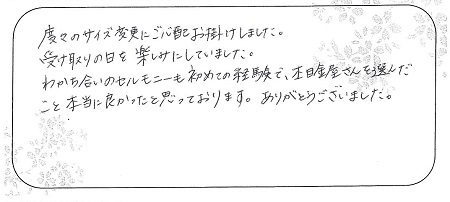 度々のサイズ変更にご心配お掛けしました。
受け取りの日を楽しみにしていました。
わかち合いのセルモニーも初めての経験で、杢目金屋さんを選んだ
こと本当に良かったと思っております。ありがとうございました。